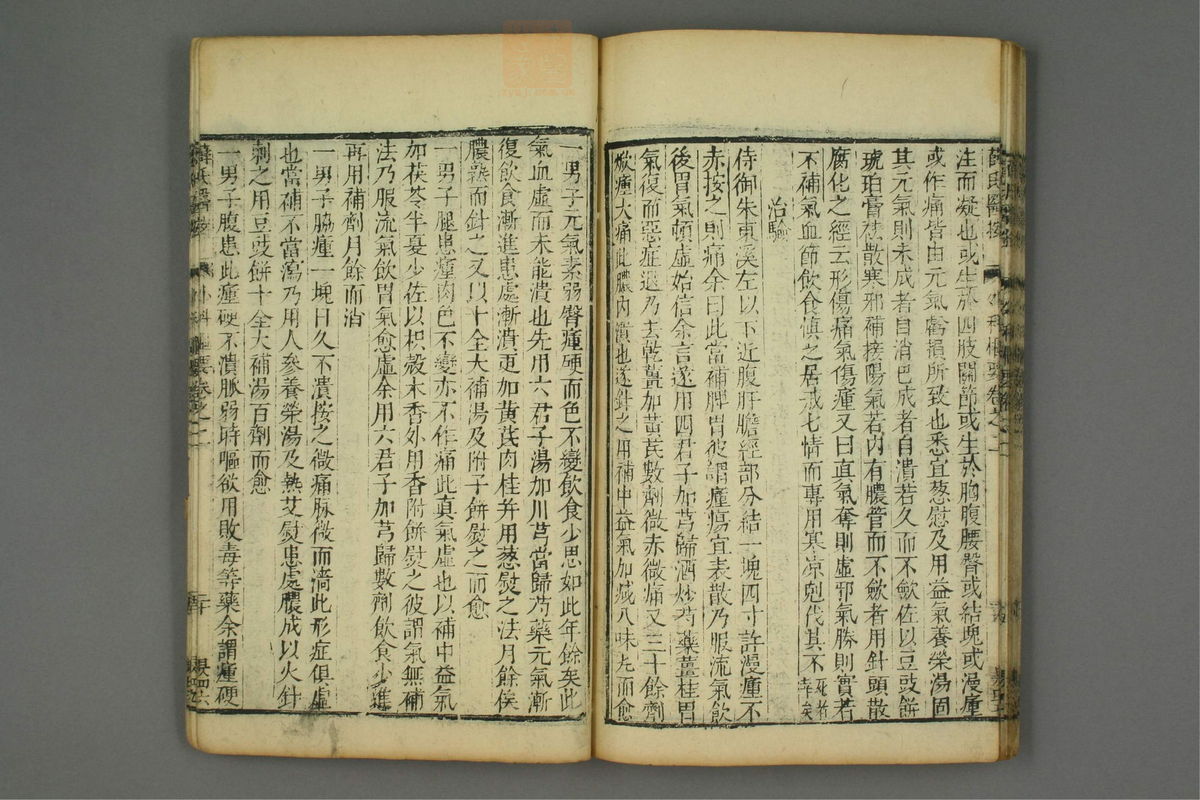 薛氏醫按
外科樞要卷之二
注而凝也或生於四肢關節或生於胸腹腰臀或結塊或漫腫
或作痛皆由元氣虧損所致也悉宜葱慰及用益氣養榮湯固
其元氣則未成者自消巴成者自潰若久而不歛佐以豆豉餅
琥珀膏祛散寒邪補接陽氣若内有膿管而不歛者用針頭散
腐化之經云形傷痛氣傷腫又曰真氣奪則虛邪氣勝則實若
不補氣血節飲食慎之居戒七情而專用寒凉剋伐其不死者幸矣
治驗
侍御朱東溪左以下近腹肝膽經部分結一塊四寸許漫腫不
赤按之則痛余曰此當補脾胃彼謂腫瘍宜表散乃服流氣飲
後胃氣頓虛始信余言遂用四君子加芎歸酒炒芍藥薑桂胃
氣復而惡症退乃去乾薑加黄芪數劑微赤微痛又三十餘劑
焮腫大痛此膿内潰也遂針之用補中益氣加減八味丸而愈
一男子元氣素弱臀腫硬而色不變飲食少思如此年餘矣此
氣血虛而未能潰也先用六君子湯加川芎當歸芍藥元氣漸
復飲食漸進患處漸潰更加黄芪肉桂并用葱熨之法月餘俟
膿熟而針之又以十全大補湯及附子餅熨之而愈
一男子腿患腫肉色不變亦不作痛此真氣虛也以補中益氣
加茯苓半夏少佐以枳殼木香外用香附餅熨之彼謂氣無補
法乃服流氣飲胃氣愈虛余用六君子加芎歸數劑飲食少進
再用補劑月餘而消
一男子脇腫一塊日久不潰按之微痛脉微而濇此形症俱虛
也當補不當瀉乃用人參養榮湯及熱艾熨患處膿成以火針
刺之用豆豉餅十全大補湯百劑而愈
一男子腹患此腫硬不潰脈弱時嘔欲用敗毒等藥余謂腫硬
薛氏醫按
外科樞要卷之二